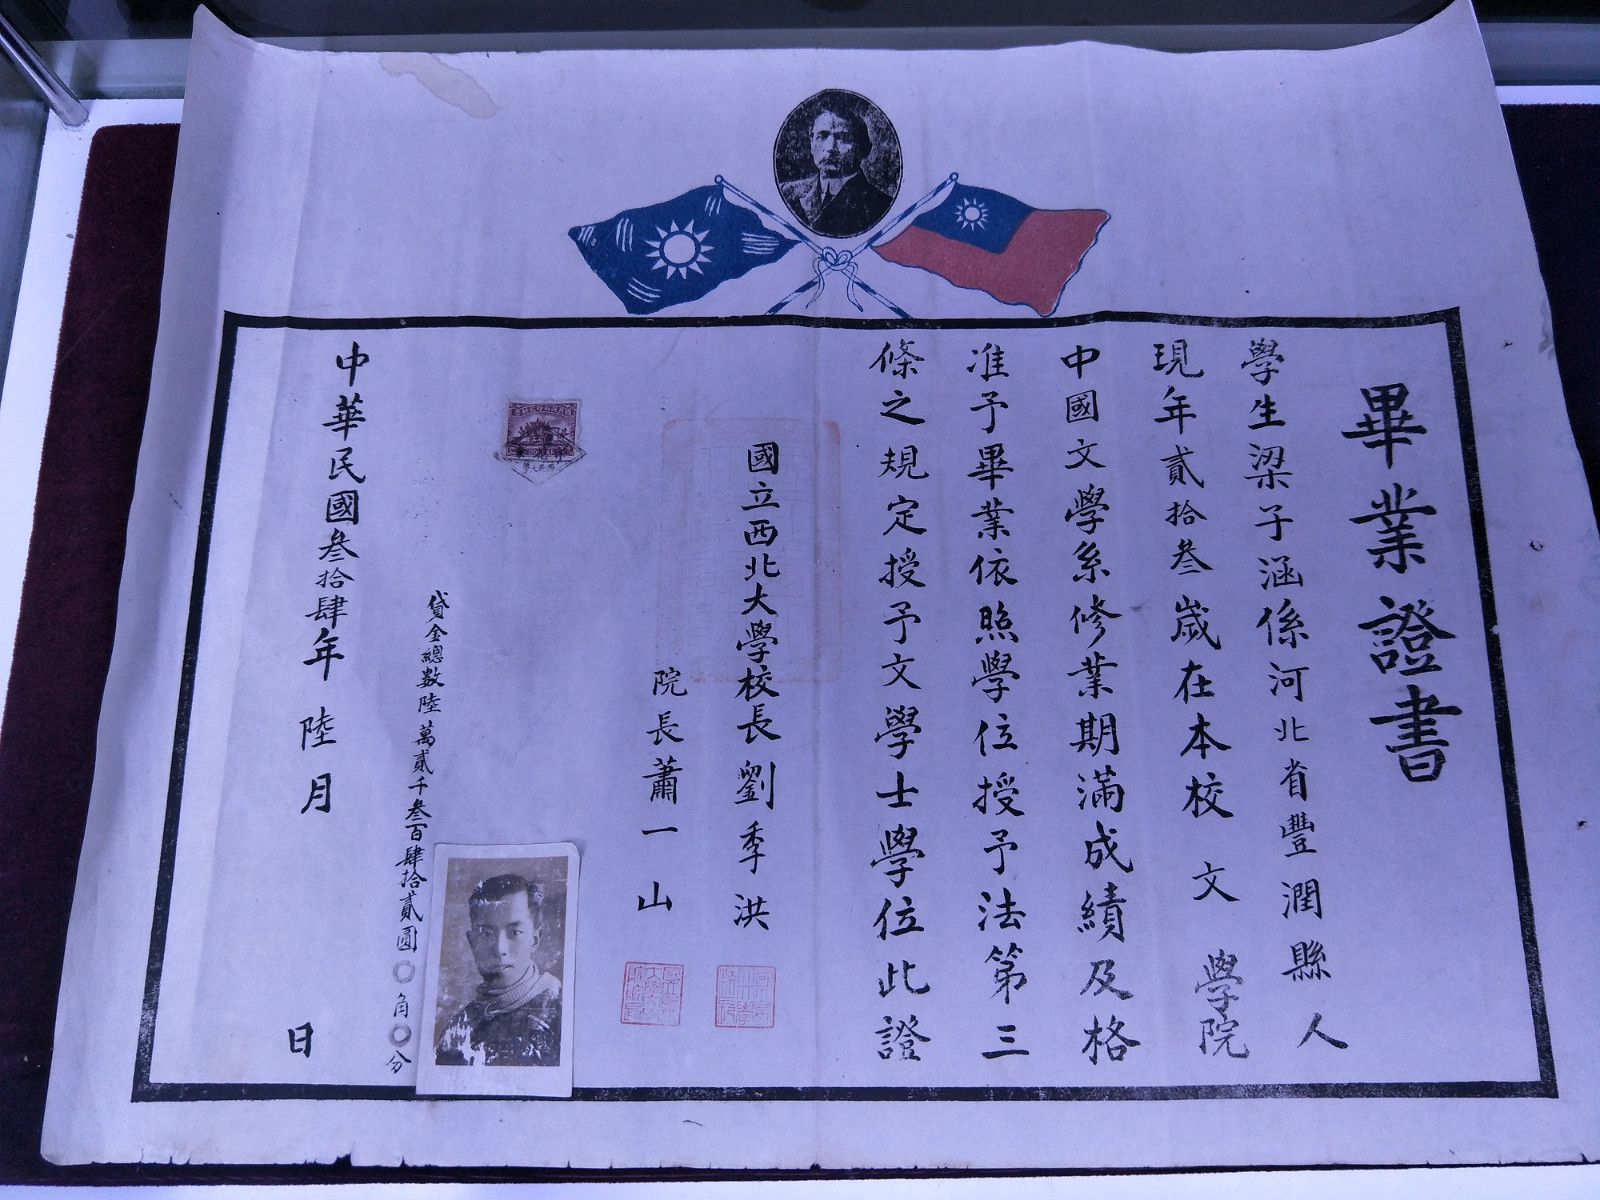 畢業證書
學生梁子涵係河北省豐潤縣人
現年貳拾叁歲在本校文學院
中國文學系修業期滿成績及格
准予畢業依照學位授予法第三
條之規定授予文學士學位此證
國立西北大學校長劉季洪
院長蕭一山
貸金總數陸萬貳千叁百肆拾貳圓〇角〇分
中華民國叁拾肆年陸月日